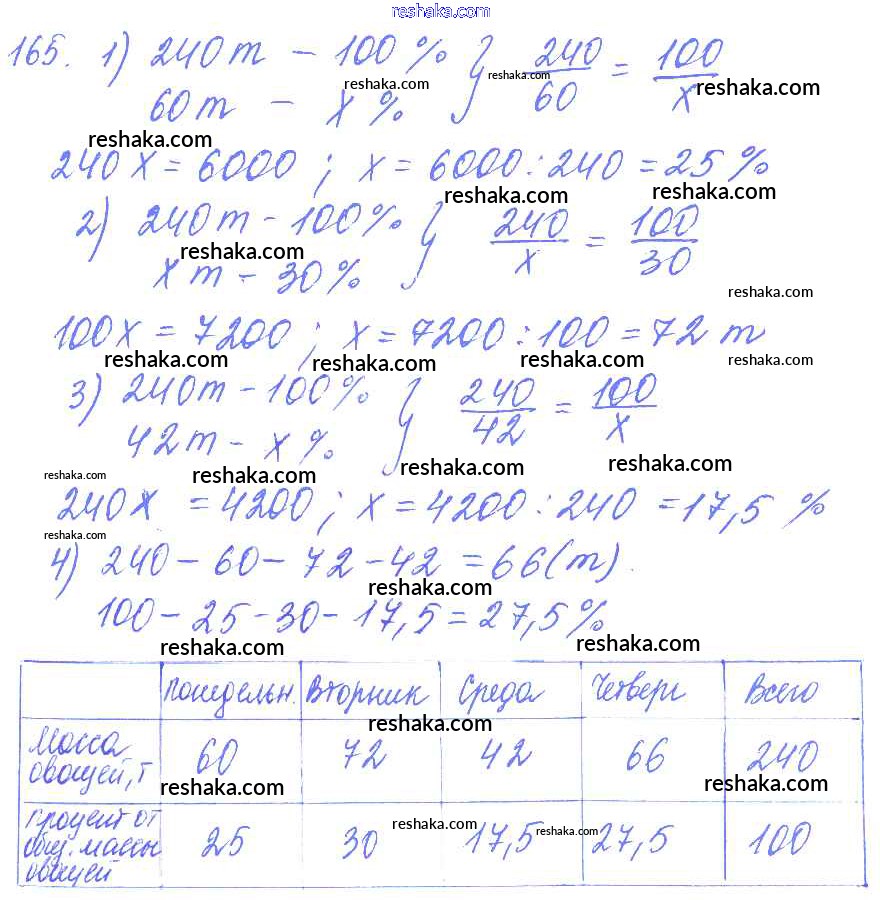 reshaka.com
165. 1) 240 т – 100 % } 240/60 = 100/x
60 т – x %
reshaka.com reshaka.com reshaka.com
reshaka.com
240 x = 6000 ; x = 6000 : 240 = 25 %
reshaka.com reshaka.com
2) 240 т – 100 % } 240/x = 100/30
reshaka.com
x т – 30 %
reshaka.com
100 x = 7200 ; x = 7200 : 100 = 72 т
reshaka.com reshaka.com reshaka.com reshaka.com
3) 240 т – 100 % } 240/42 = 100/x
42 т – x %
reshaka.com reshaka.com reshaka.com reshaka.com
240 x = 4200 ; x = 4200 : 240 = 17,5 %
reshaka.com
4) 240 – 60 – 72 – 42 = 66 (т).
reshaka.com
100 – 25 – 30 – 17,5 = 27,5 %
reshaka.com reshaka.com
Понедельн. Вторник Среда Четверг Всего
reshaka.com
Масса овощей, т 60 72 42 66 240
reshaka.com reshaka.com
Процент от общ. массы овощей 25 30 17,5 27,5 100
reshaka.com reshaka.com